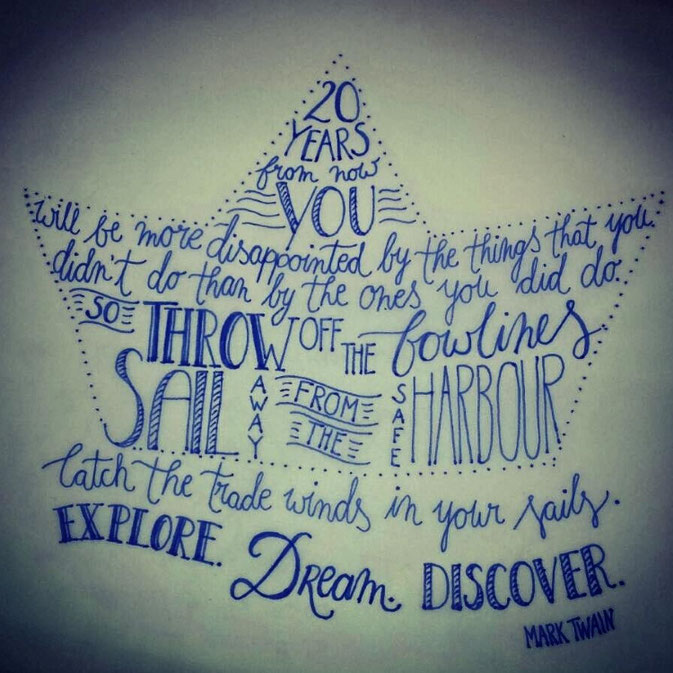 20
YEARS
from now
YOU
will be more disappointed by the things that you
didn't do than by the ones you did do.
SO THROW OFF THE bowlines
SAIL AWAY FROM THE SAFE HARBOUR
Catch the trade winds in your sails.
EXPLORE. Dream. DISCOVER.
MARK TWAIN